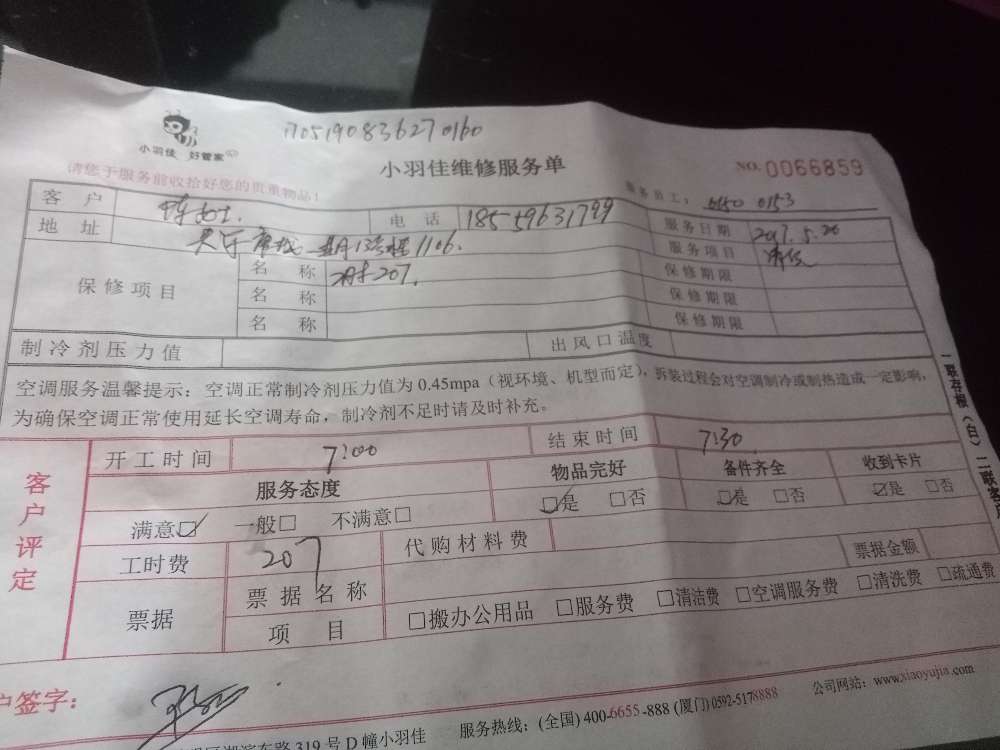 1705190836270160
小羽佳 好管家
小羽佳维修服务单
NO. 0066859
请您于服务前收拾好您的贵重物品!
服务员工: 0153
客 户
电 话 18559631799
服务日期 2017.5.20
地 址 1106.
服务项目
保修项目
名 称 207.
保修期限
名 称
保修期限
名 称
保修期限
制冷剂压力值
出风口温度
空调服务温馨提示:空调正常制冷剂压力值为 0.45mpa(视环境、机型而定),拆装过程会对空调制冷或制热造成一定影响,
为确保空调正常使用延长空调寿命,制冷剂不足时请及时补充。
一联存根(白) 二联客户
客户评定
开工时间 7:00
结束时间 7:30
服务态度
物品完好
备件齐全
收到卡片
满意☑ 一般□ 不满意□
☑是 □否
☑是 □否
☑是 □否
工时费 207
代购材料费
票据
票据名称
票据金额
项 目
□搬办公用品 □服务费 □清洁费 □空调服务费 □清洗费 □疏通费
户签字:
湖滨东路 319 号 D 幢小羽佳
服务热线:(全国) 400-6655-888 (厦门) 0592-5178888
公司网站:www.xiaoyujia.com